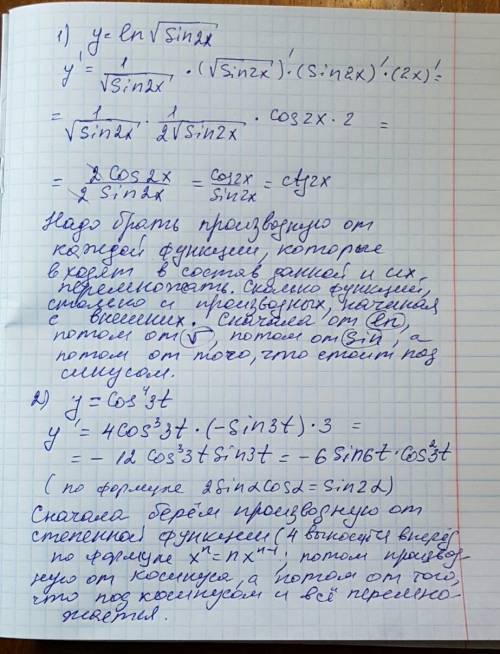 1) y = ln √sin2x
y' = 1/√sin2x · (√sin2x)' · (sin2x)' · (2x)' =
= 1/√sin2x · 1/2√sin2x · cos2x · 2 =
= 2cos2x/2sin2x = cos2x/sin2x = ctg2x
Надо брать производную от
каждой функции, которые
входят в состав данной и их
перемножать. Сколько функций,
столько и производных, начиная
с внешних. Сначала от ln,
потом от √, потом от sin, а
потом от того, что стоит под
синусом.
2) y = cos⁴3t
y' = 4cos³3t · (-sin3t) · 3 =
= -12 cos³3t sin3t = -6 sin6t · cos²3t
(по формуле 2sinα cosα = sin2α)
Сначала берём производную от
степенной функции (4 выносится вперёд
по формуле xⁿ = nxⁿ⁻¹; потом производ-
ную от косинуса, а потом от того,
что под косинусом и всё перемно-
жается.